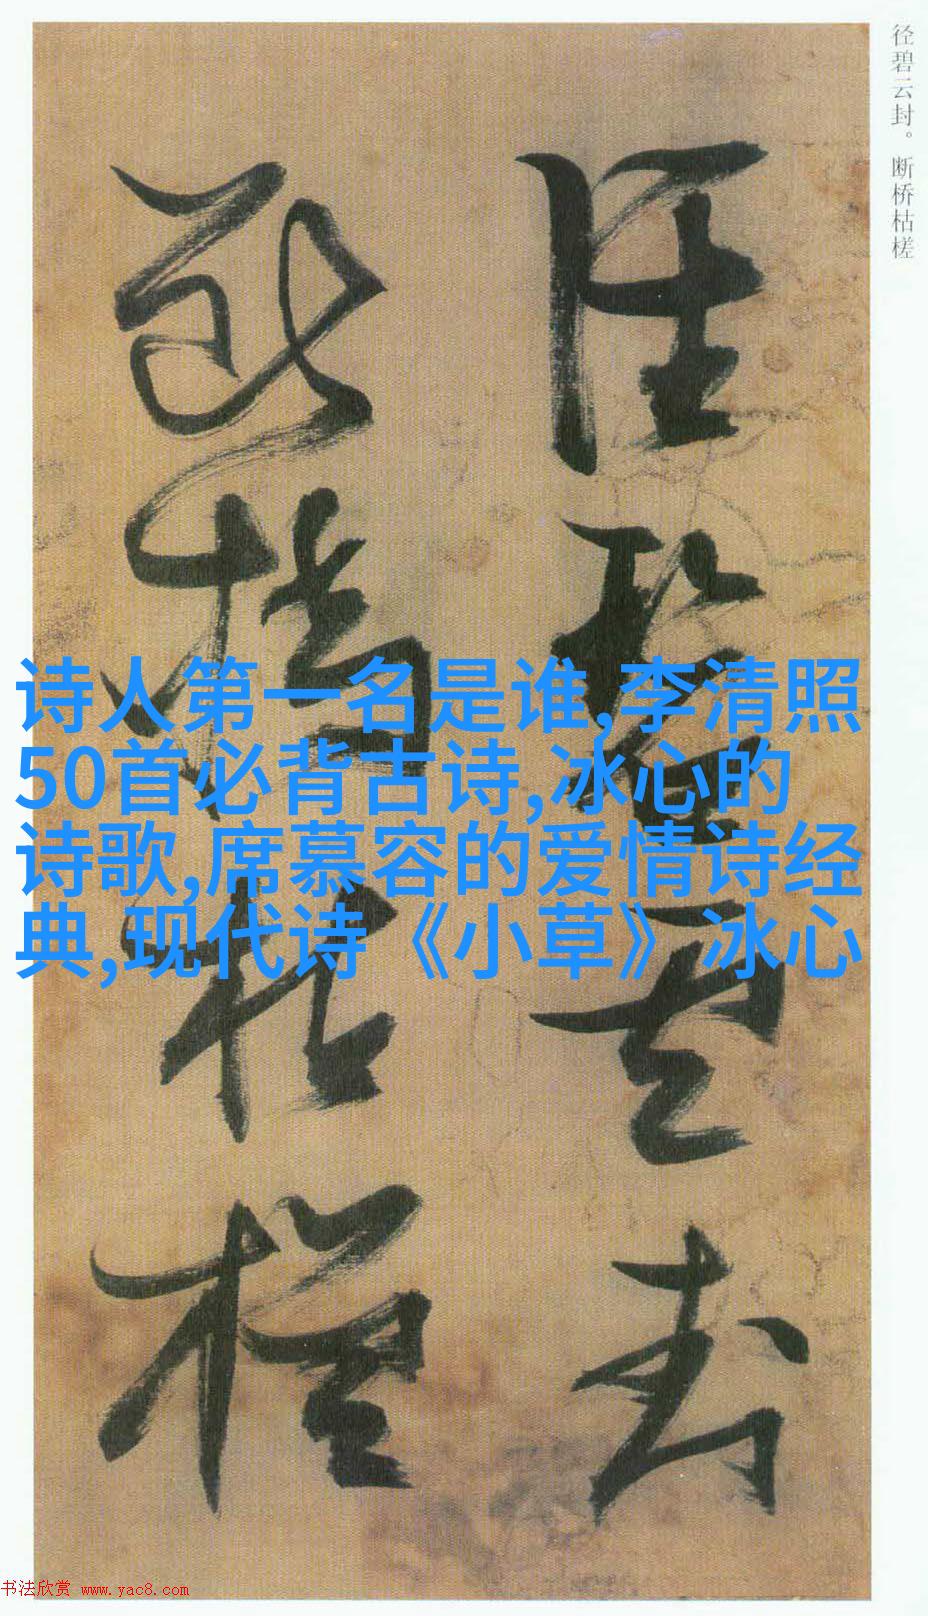 径碧云封。断桥枯槎
径碧云封
断桥枯槎
诗人第一名是谁,李清照
50首必背古诗,冰心的
诗歌,席慕容的爱情诗经
典,现代诗《小草》冰心
书法欣赏 www.yac8.com